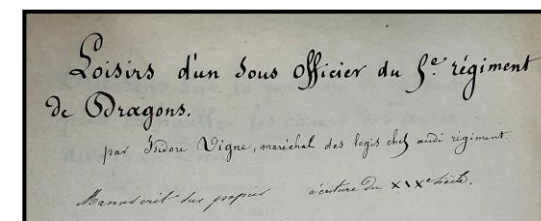 Loisirs d'un Sous Officier du 5e. régiment
de Dragons.
par Isidore Vigne, maréchal des logis chef audi régiment.
Manuscrit sur papier écriture du XIXe siècle.